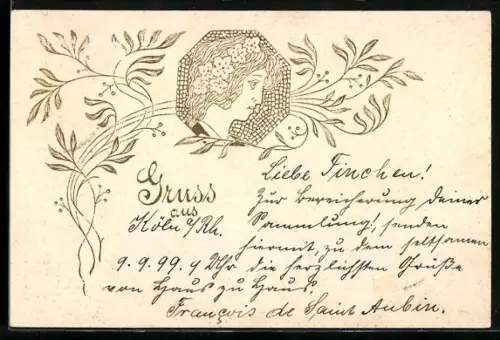 Liebe Finchen!
Gruss
aus
Köln a/Rh.
Zur Bereicherung deiner
Sammlung!, senden
hiermit, zu dem seltsamen
9.9.99. 9 Uhr die herzlichsten Grüße
von Haus zu Haus.
François de Saint Aubin.